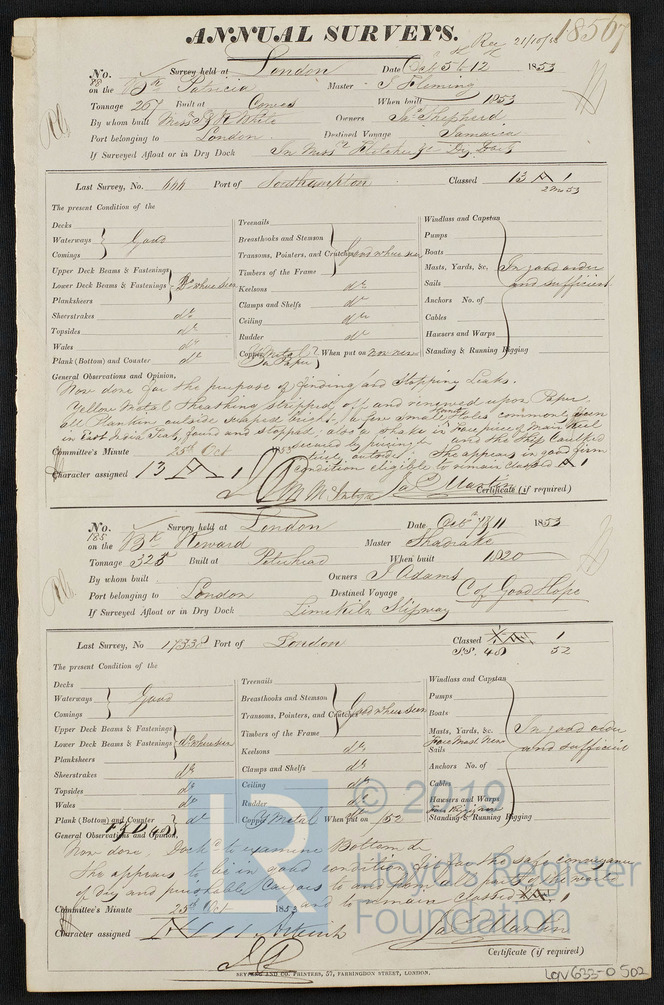 ANNUAL SURVEYS.
Rec 21/10/53
18567
No. 98 Survey held at London Date Oct 5th 12th 1853
on the Bk Patricia Master J Fleming
Tonnage 267 Built at Cowes When built 1853
By whom built Messrs J & R White Owners Jas Shepherd
Port belonging to London Destined Voyage Jamaica
If Surveyed Afloat or in Dry Dock In Messrs Fletcher Dry Dock
Last Survey, No. 644 Port of Southampton Classed 13 A 1
2 mo 53
The present Condition of the
Decks
Waterways } Good
Comings
Upper Deck Beams & Fastenings
Lower Deck Beams & Fastenings Do where seen
Planksheers
Sheerstrakes do
Topsides do
Wales do
Plank (Bottom) and Counter do
Treenails
Breasthooks and Stemson
Transoms, Pointers, and Crutches Good where seen
Timbers of the Frame
Keelsons do
Clamps and Shelfs do
Ceiling do
Rudder do
Copper Y Metal on Paper When put on Now new
Windlass and Capstan
Pumps
Boats
Masts, Yards, &c. In good order
Sails and sufficient
Anchors No. of
Cables
Hawsers and Warps
Standing & Running Rigging
General Observations and Opinion,
Now done for the purpose of finding and Stopping Leaks.
Yellow Metal Sheathing stripped off and renewed upon Paper
all Planking outside scraped bright, a few small Holes common seen
in East India Teak, found and stopped, also a shake in fore piece of Main Keel
secured by piecing and the Ship Caulked
outside. She appears in good firm
condition eligible to remain Classed A 1
Committee's Minute 25th Oct 1853
Character assigned 13 A 1
Jas Martin
Certificate (if required)
No. 185 Survey held at London Date Octr 7 & 11 1853
on the Bk Reward Master Shadrake
Tonnage 325 Built at Peterhead When built 1820
By whom built Owners J Adams
Port belonging to London Destined Voyage C of Good Hope
If Surveyed Afloat or in Dry Dock Lime Kiln Slipway
Last Survey, No 17338 Port of London Classed 1
SS. 48 52
The present Condition of the
Decks
Waterways } Good
Comings
Upper Deck Beams & Fastenings
Lower Deck Beams & Fastenings do where seen
Planksheers
Sheerstrakes do
Topsides do
Wales do
Plank (Bottom) and Counter do
Treenails
Breasthooks and Stemson
Transoms, Pointers, and Crutches Good where seen
Timbers of the Frame
Keelsons do
Clamps and Shelfs do
Ceiling do
Rudder do
Copper Y Metal When put on /52
Windlass and Capstan
Pumps
Boats
Masts, Yards, &c. In good order
Fore Mast New
Sails and sufficient
Anchors No. of
Cables
Hawsers and Warps
Standing & Running Rigging
General Observations and Opinion,
Now done Dock'd to examine Bottom &c
She appears to be in good condition fit for the safe conveyance
of dry and perishable Cargoes to and from all parts of the world
and to remain classed 1
Committee's Minute 25th Oct 1853
Character assigned
Jas Martin
Certificate (if required)
REYNELL AND CO. PRINTERS, 57, FARRINGDON STREET, LONDON.
LQV633-0502
LR
© 2019
Lloyd's Register
Foundation